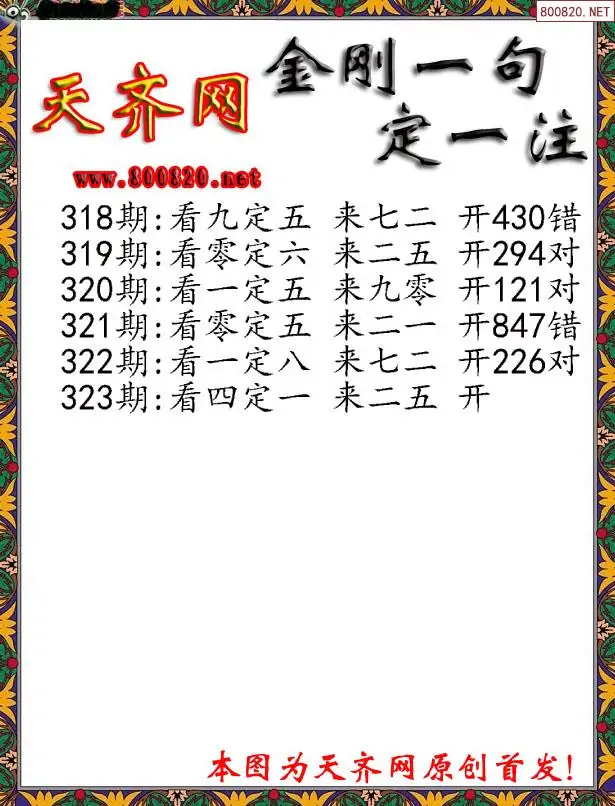 800820.NET
天齐网
金刚一句
定一注
www.800820.net
318期:看九定五 来七二 开430错
319期:看零定六 来二五 开294对
320期:看一定五 来九零 开121对
321期:看零定五 来二一 开847错
322期:看一定八 来七二 开226对
323期:看四定一 来二五 开
本图为天齐网原创首发!